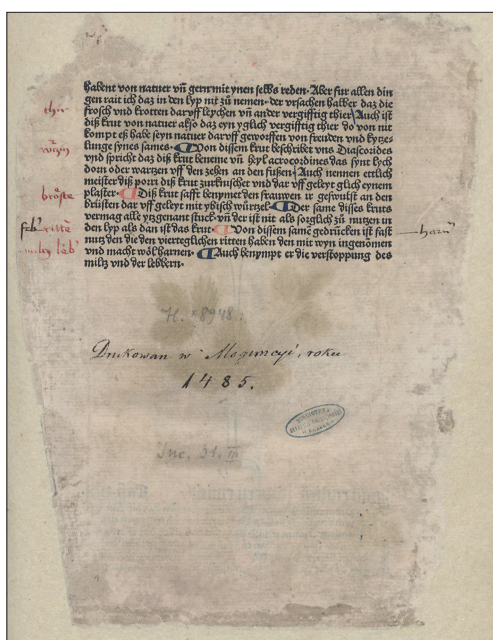 habent von natuer vñ gern mit ynen selbs reden· Aber fur allen din
gen rait ich daz in den lyp nit zů nemen· der vrsachen halber daz die
frosch vnd krotten daryff leychen vñ ander vergifftig thier Auch ist
diß krut von natuer also daz eyn yglich vergifftig thier do von nit
kompt eß habe seyn natuer daryff geworffen von freuden vnd
synes sames· Von dissem krut beschribet vns Diascorides
vnd spricht daz diß krut beneme vñ heyl acrocordines das synt lych
dorn oder warzen vff den zehen an den fußen Auch nennen ettlich
meister diß porri diß krut zurknuschet vnd dar vff geleyt glich eynem
plaister· Diß krut safft benymet den frauwen ir geswulst an den
brůsten dar vff geleyt mit ybisch würtzel· Der same disses kruts
vermag alle ytzgenant stuck vñ der ist nit also sorglich zů nutzen in
den lyp als dan ist das krut· Von dissem same gedrucken ist fast
nutz den die den vierteglichen ritten haben den mit wyn ingenomen
vnd macht wol harnen· Auch benympt er die verstoppung des
miltz vnd der lebbern·
thir
brőste
H. *8948.
Drukowan w Moguncyi, roku
1485.
Inc. 31. III